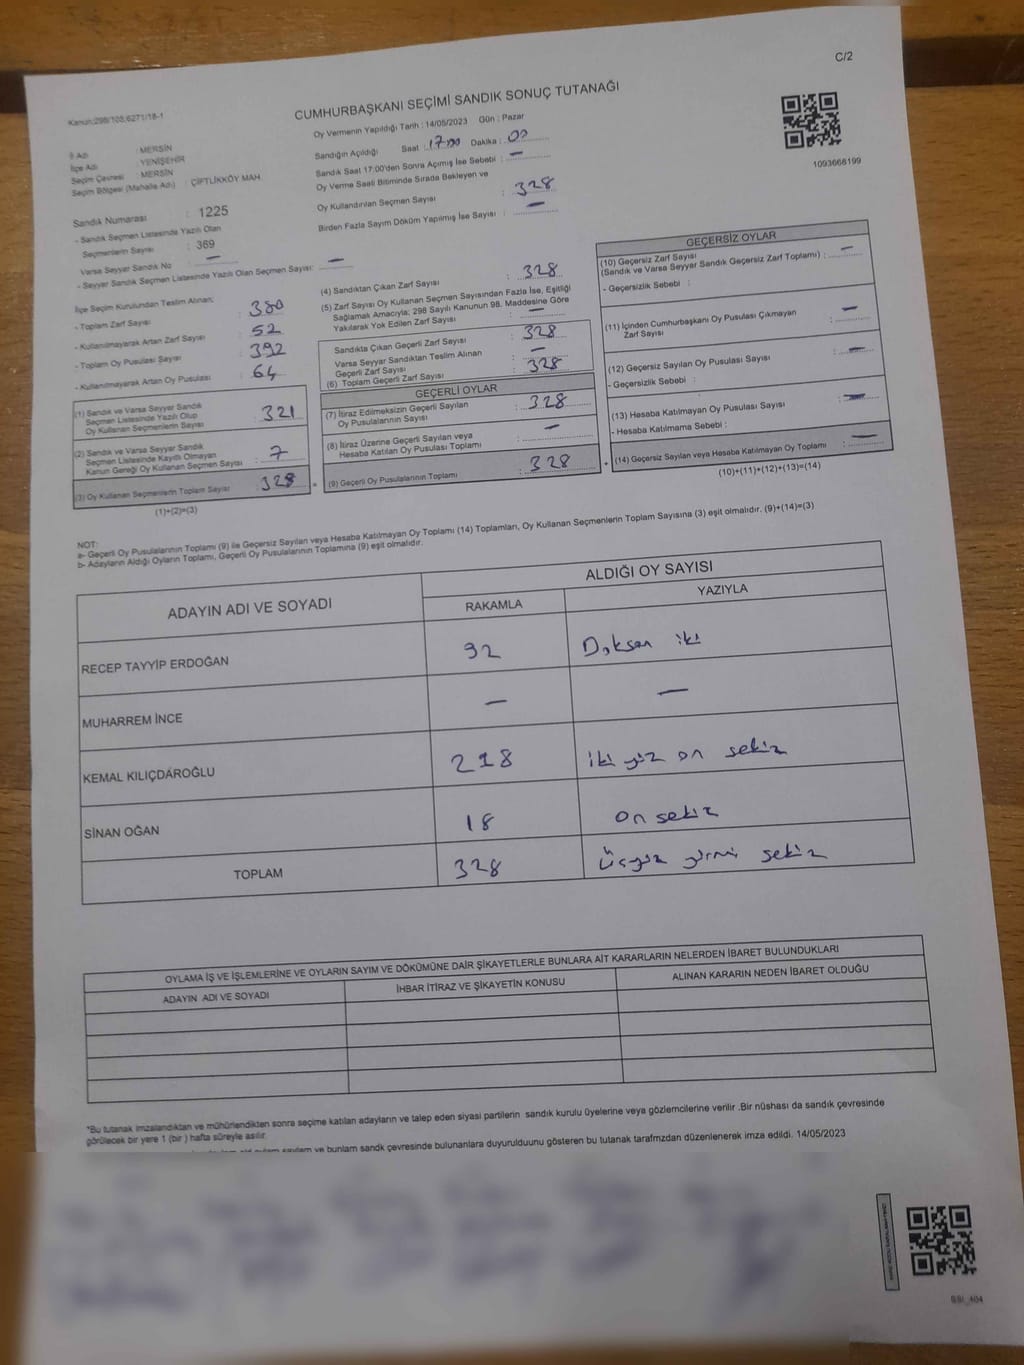 C/2
CUMHURBAŞKANI SEÇİMİ SANDIK SONUÇ TUTANAĞI
Kanun:298/108;6271/18-1
Oy Vermenin Yapıldığı Tarih : 14/05/2023 Gün : Pazar
İl Adı : MERSİN
İlçe Adı : YENİŞEHİR
Seçim Çevresi : MERSİN
Seçim Bölgesi (Mahalle Adı) : ÇİFTLİKKÖY MAH.
Sandığın Açıldığı Saat : 17:00 Dakika : 00
Sandık Saat 17:00'den Sonra Açımış İse Sebebi : —
Oy Verme Saati Bitiminde Sırada Bekleyen ve
Oy Kullandırılan Seçmen Sayısı : 328
Birden Fazla Sayım Döküm Yapılmış İse Sayısı : —
1093668199
Sandık Numarası : 1225
- Sandık Seçmen Listesinde Yazılı Olan
Seçmenlerin Sayısı : 369
Varsa Seyyar Sandık No —
- Seyyar Sandık Seçmen Listesinde Yazılı Olan Seçmen Sayısı: —
İlçe Seçim Kurulundan Teslim Alınan:
- Toplam Zarf Sayısı : 380
- Kullanılmayarak Artan Zarf Sayısı : 52
- Toplam Oy Pusulası Sayısı : 392
- Kullanılmayarak Artan Oy Pusulası : 64
(1) Sandık ve Varsa Seyyar Sandık
Seçmen Listesinde Yazılı Olup
Oy Kullanan Seçmenlerin Sayısı : 321
(2) Sandık ve Varsa Seyyar Sandık
Seçmen Listesinde Kayıtlı Olmayan
Kanun Gereği Oy Kullanan Seçmen Sayısı : 7
(3) Oy Kullanan Seçmenlerin Toplam Sayısı : 328
(1)+(2)=(3)
(4) Sandıktan Çıkan Zarf Sayısı : 328
(5) Zarf Sayısı Oy Kullanan Seçmen Sayısından Fazla İse, Eşitliği
Sağlamak Amacıyla; 298 Sayılı Kanunun 98. Maddesine Göre
Yakılarak Yok Edilen Zarf Sayısı : —
Sandıkta Çıkan Geçerli Zarf Sayısı : 328
Varsa Seyyar Sandıktan Teslim Alınan
Geçerli Zarf Sayısı : —
(6) Toplam Geçerli Zarf Sayısı : 328
GEÇERLİ OYLAR
(7) İtiraz Edilmeksizin Geçerli Sayılan
Oy Pusulalarının Sayısı : 328
(8) İtiraz Üzerine Geçerli Sayılan veya
Hesaba Katılan Oy Pusulası Toplamı : —
(9) Geçerli Oy Pusulalarının Toplamı : 328
GEÇERSİZ OYLAR
(10) Geçersiz Zarf Sayısı
(Sandık ve Varsa Seyyar Sandık Geçersiz Zarf Toplamı) : —
- Geçersizlik Sebebi :
(11) İçinden Cumhurbaşkanı Oy Pusulası Çıkmayan
Zarf Sayısı : —
(12) Geçersiz Sayılan Oy Pusulası Sayısı : —
- Geçersizlik Sebebi :
(13) Hesaba Katılmayan Oy Pusulası Sayısı : —
- Hesaba Katılmama Sebebi :
(14) Geçersiz Sayılan veya Hesaba Katılmayan Oy Toplamı : —
(10)+(11)+(12)+(13)=(14)
NOT:
a- Geçerli Oy Pusulalarının Toplamı (9) ile Geçersiz Sayılan veya Hesaba Katılmayan Oy Toplamı (14) Toplamları, Oy Kullanan Seçmenlerin Toplam Sayısına (3) eşit olmalıdır. (9)+(14)=(3)
b- Adayların Aldığı Oyların Toplamı, Geçerli Oy Pusulalarının Toplamına (9) eşit olmalıdır.
ADAYIN ADI VE SOYADI ALDIĞI OY SAYISI
RAKAMLA YAZIYLA
RECEP TAYYİP ERDOĞAN 92 Doksan iki
MUHARREM İNCE — —
KEMAL KILIÇDAROĞLU 218 iki yüz on sekiz
SİNAN OĞAN 18 on sekiz
TOPLAM 328 üçyüz yirmi sekiz
OYLAMA İŞ VE İŞLEMLERİNE VE OYLARIN SAYIM VE DÖKÜMÜNE DAİR ŞİKAYETLERLE BUNLARA AİT KARARLARIN NELERDEN İBARET BULUNDUKLARI
ADAYIN ADI VE SOYADI İHBAR İTİRAZ VE ŞİKAYETİN KONUSU ALINAN KARARIN NEDEN İBARET OLDUĞU
*Bu tutanak imzalandıktan ve mühürlendikten sonra seçime katılan adayların ve talep eden siyasi partilerin sandık kurulu üyelerine veya gözlemcilerine verilir .Bir nüshası da sandık çevresinde
görülecek bir yere 1 (bir ) hafta süreyle asılır.
sayılam ve bunlam sandk çevresinde bulunanlara duyurulduunu gösteren bu tutanak tarafmızdan düzenlenerek imza edildi. 14/05/2023
SSI_404